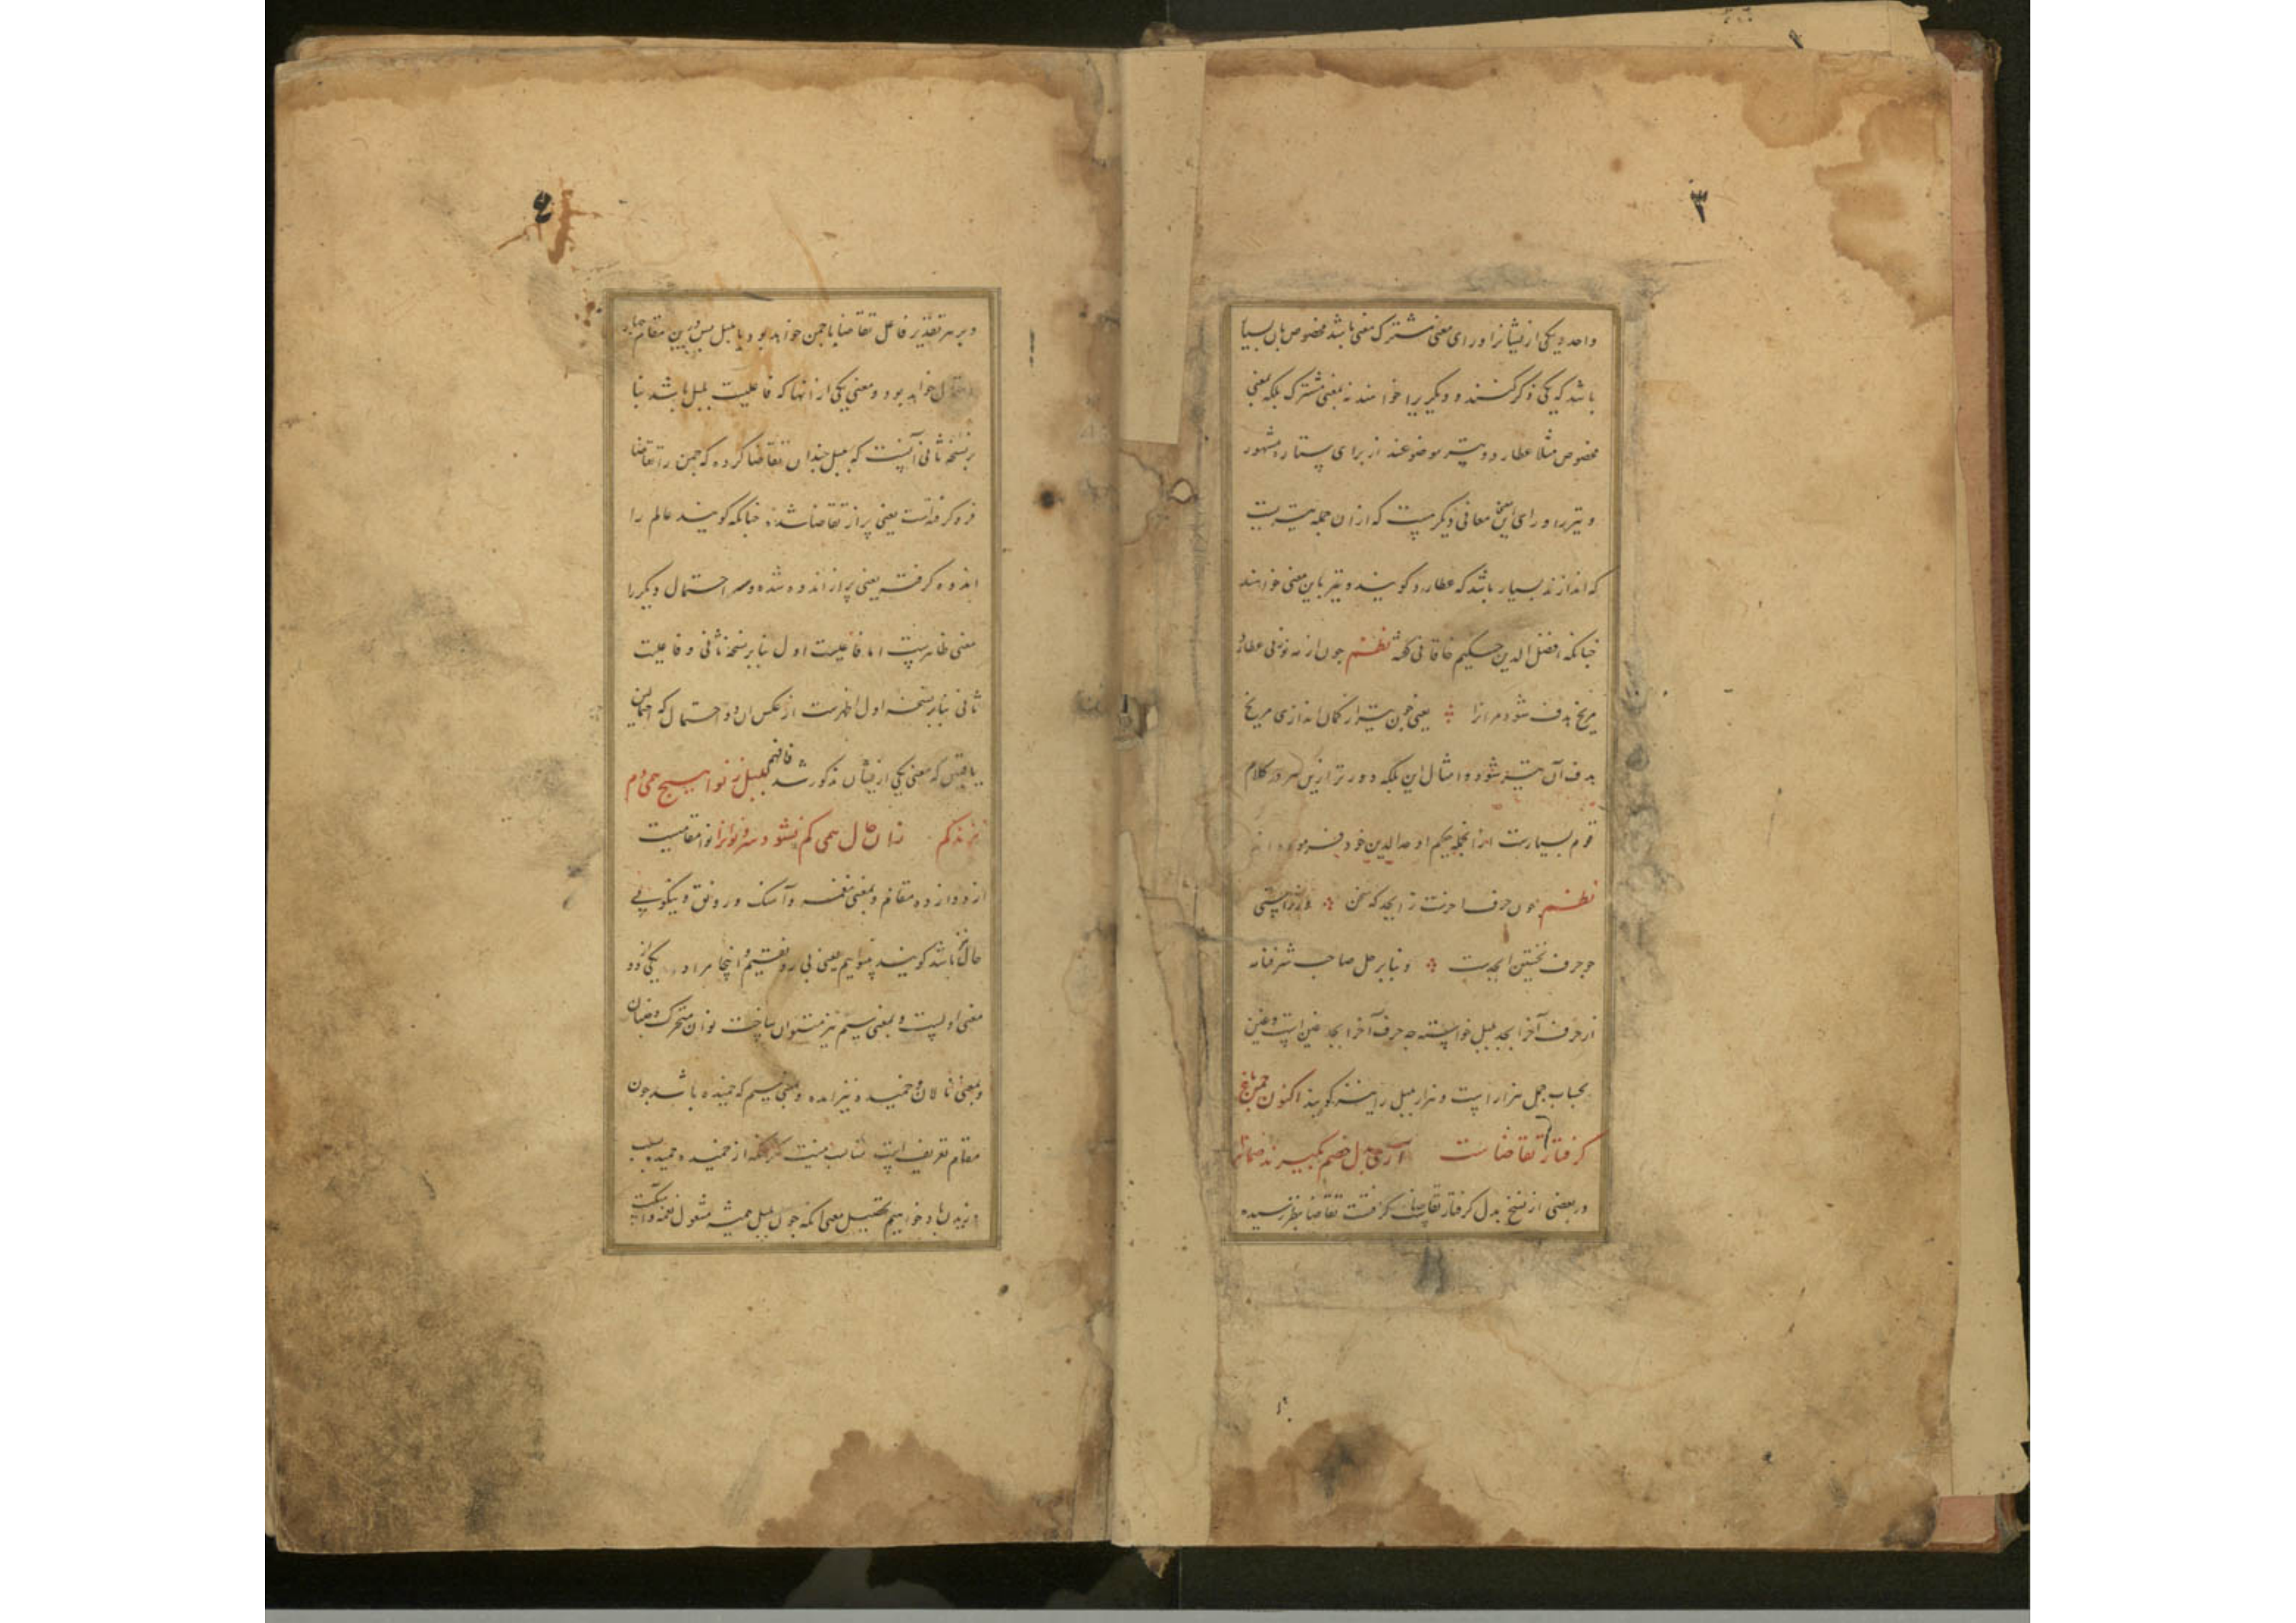 ۳
واحد و یکی از ایشانرا ورای معنی مشترک معنی باشد مخصوص بان بسیا
باشد که یکی ذکر کنند و دیگریرا خواهند نه بمعنی مشترک بلکه بمعنی
مخصوص مثلا عطارد و تیر موضوعند از برای ستاره مشهور
و تیر را ورای این معانی دیگر هست که از ان جمله تیریست
که اندازند بسیار باشد که عطارد گویند و تیر باین معنی خواهند
چنانکه افضل الدین حکیم خاقانی گفته نظم چون از مه نو زنی عطارد
مریخ هدف شود مرانرا یعنی چون تیر از کمان اندازی مریخ
هدف آن تیر شود و امثال این بلکه دورتر ازین در کلام
قوم بسیارست ازانجمله حکیم اوحدالدین خود فرموده
نظم چون حرف اخرست ز ابجد که سخن
حرف نخستین ابجدست و بنابر حل صاحب شرفنامه
از حرف آخر ابجد بلبل خواسته چه حرف آخر ابجد غین است و غین
بحساب جمل هزار است و هزار بلبل را نیز گویند اکنون چمن باغ
گرفتار تقاضاست آری بدل خصم بگیرند ضمانرا
و در بعضی از نسخ بدل گرفتار تقاضاست گرفتست تقاضا بنظر رسیده
۴
و بر هر تقدیر فاعل تقاضا یا چمن خواهد بود یا بلبل پس درین مقام چهار
احتمال خواهد بود و معنی یکی از انها که فاعلیت بلبل باشد بنا
بر نسخه ثانی آنست که بلبل چندان تقاضا کرده که چمن را تقاضا
فرو گرفته است یعنی پر از تقاضا شده چنانکه گویند عالم را
اندوه گرفت یعنی پر از اندوه شده و سه احتمال دیگر را
معنی ظاهرست اما فاعلیت اول بنابر نسخه ثانی و فاعلیت
ثانی بنابر نسخه اول اظهرست از عکس ان دو احتمال که
یافتن که معنی یکی از ایشان مذکور شد فافهم بلبل ز نوا هیچ همی کم
نزند دم زان حال همی کم نشود سرو نوانرا نوا مقامیست
از دوازده مقام و بمعنی نغمه و آهنگ و رونق و نیکویی
حال نیز باشد گویند بینواییم یعنی بی رونقیم و اینجا مراد یکی از دو
معنی اولست و بمعنی سیم نیز میتوان ساخت نوان متحرک و جنبان
و بمعنی نالان و خمیده نیز امده و معنی سیم که خمیده باشد چون
مقام تعریف است مناسب نیست
بلبل همیشه مشغول نغمه و